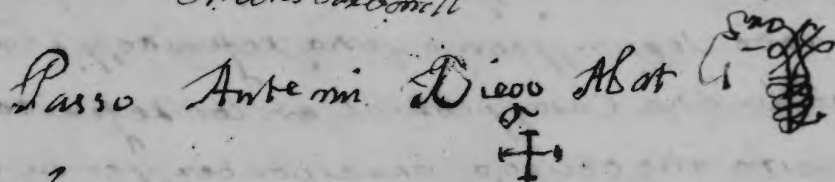 Passo Ante mi Diego Abat Sno